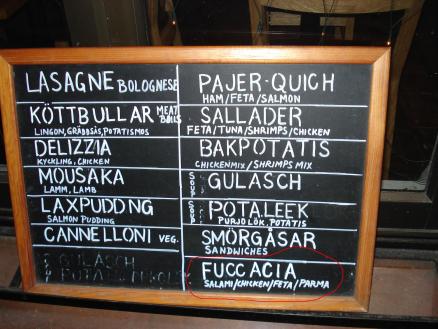 LASAGNE BOLOGNESE
KÖTTBULLAR MEAT BALLS
LINGON, GRÄDDSÅS, POTATISMOS
DELIZZIA
KYCKLING, CHICKEN
MOUSAKA
LAMM, LAMB
LAXPUDDNG
SALMON PUDDING
CANNELLONI VEG.
GULASCH
PAJER-QUICH
HAM/FETA/SALMON
SALLADER
FETA/TUNA/SHRIMPS/CHICKEN
BAKPOTATIS
CHICKENMIX/SHRIMPS MIX
SOUP GULASCH
SOUP POTALEEK
PURJOLÖK, POTATIS
SMÖRGÅSAR
SANDWICHES
FUCCACIA
SALAMI/CHICKEN/FETA/PARMA